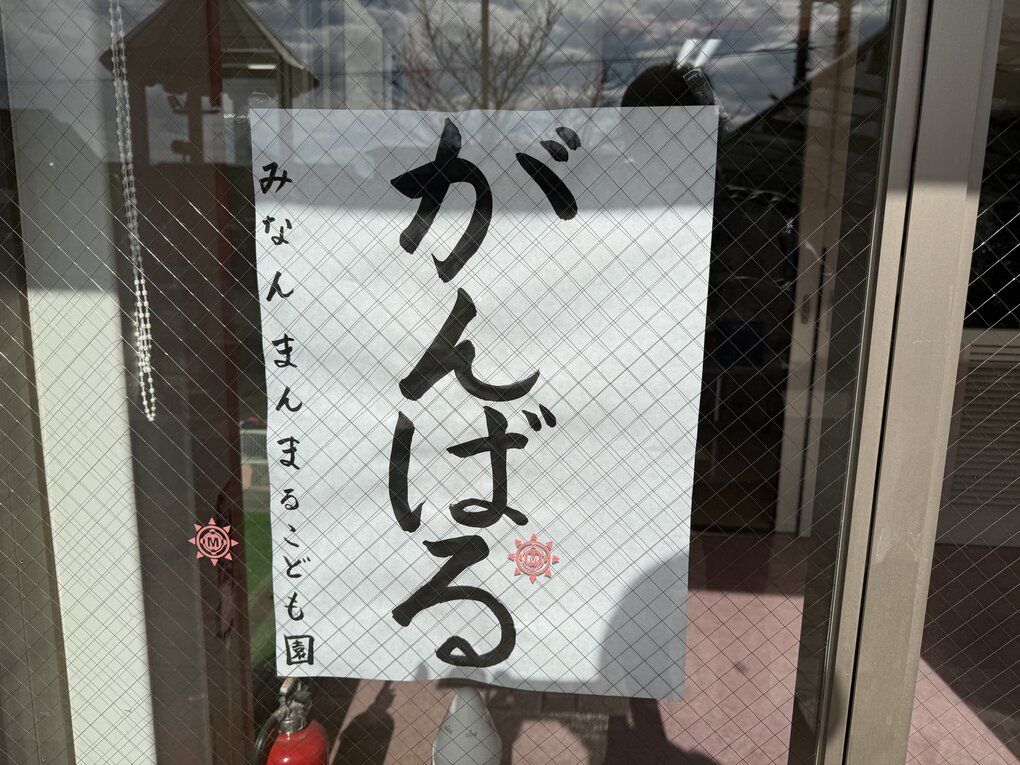 がんばる
みなんまんまるこども園
M
M